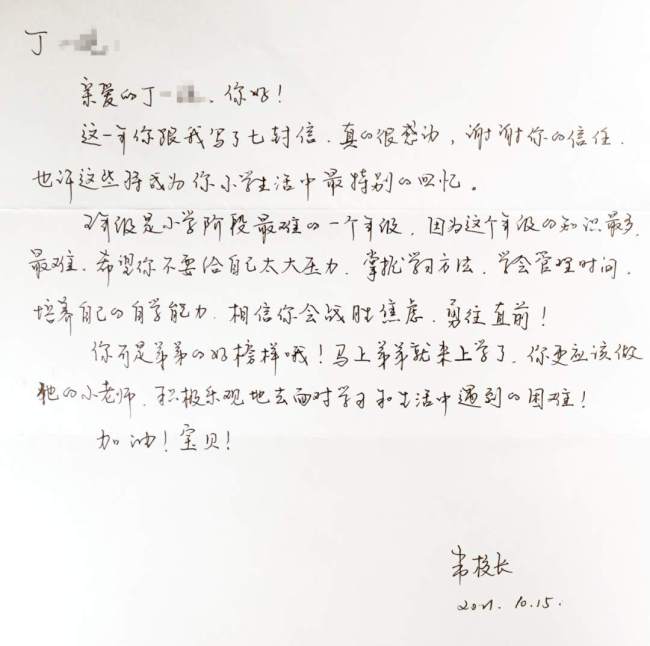 丁一
亲爱的丁一 、你好！
这一年你跟我写了七封信、真的很感动，谢谢你的信任、
也许这些将成为你小学生活中最特别的回忆。
年级是小学阶段最难的一个年级、因为这个年级的知识最多、
最难、希望你不要给自己太大压力、掌握学习方法、学会管理时间、
培养自己的自学能力、相信你会战胜焦虑、勇往直前！
你可是弟弟的好榜样哦！马上弟弟就来上学了、你更应该做
他的小老师、积极乐观地去面对学习和生活中遇到的困难！
加油！宝贝！
韦校长
2021.10.15.